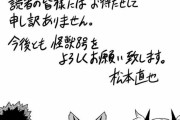 読者の皆様にはお待たせして
申し訳ありません。
今後とも怪獣8号を
よろしくお願い致します。
松本直也